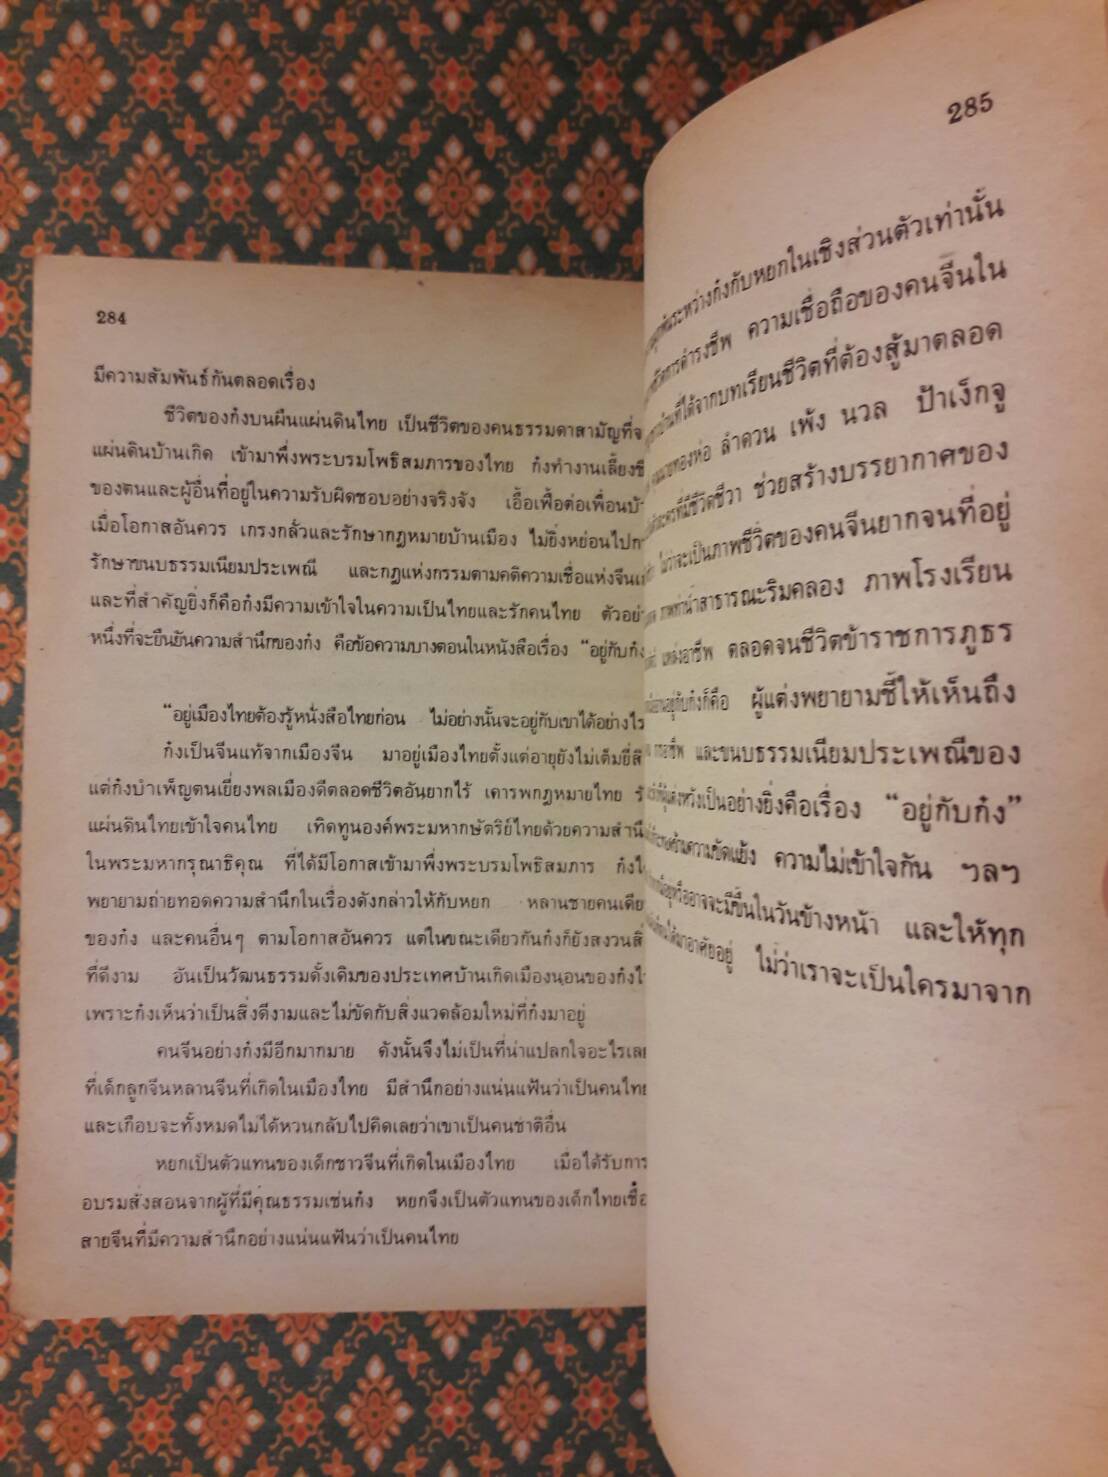 284
มีความสัมพันธ์กันตลอดเรื่อง
ชีวิตของก๋งบนผืนแผ่นดินไทย เป็นชีวิตของคนธรรมดาสามัญที่จ
แผ่นดินบ้านเกิด เข้ามาพึ่งพระบรมโพธิสมภารของไทย ก๋งทำงานเลี้ยงชี
ของตนและผู้อื่นที่อยู่ในความรับผิดชอบอย่างจริงจัง เอื้อเฟื้อต่อเพื่อนบ้
เมื่อโอกาสอันควร เกรงกลัวและรักษากฎหมายบ้านเมือง ไม่ยิ่งหย่อนไปกว
รักษาขนบธรรมเนียมประเพณี และกฎแห่งกรรมตามคติความเชื่อแห่งจีนเ
และที่สำคัญยิ่งก็คือก๋งมีความเข้าใจในความเป็นไทยและรักคนไทย ตัวอย่
หนึ่งที่จะยืนยันความสำนึกของก๋ง คือข้อความบางตอนในหนังสือเรื่อง “อยู่กับก๋ง
“อยู่เมืองไทยต้องรู้หนังสือไทยก่อน ไม่อย่างนั้นจะอยู่กับเขาได้อย่างไร
ก๋งเป็นจีนแท้จากเมืองจีน มาอยู่เมืองไทยตั้งแต่อายุยังไม่เต็มยี่สิ
แต่ก๋งบำเพ็ญตนเยี่ยงพลเมืองดีตลอดชีวิตอันยากไร้ เคารพกฎหมายไทย รั
แผ่นดินไทยเข้าใจคนไทย เทิดทูนองค์พระมหากษัตริย์ไทยด้วยความสำนึ
ในพระมหากรุณาธิคุณ ที่ได้มีโอกาสเข้ามาพึ่งพระบรมโพธิสมภาร ก๋งไ
พยายามถ่ายทอดความสำนึกในเรื่องดังกล่าวให้กับหยก หลานชายคนเดีย
ของก๋ง และคนอื่นๆ ตามโอกาสอันควร แต่ในขณะเดียวกันก๋งก็ยังสงวนสิ่
ที่ดีงาม อันเป็นวัฒนธรรมดั้งเดิมของประเทศบ้านเกิดเมืองนอนของก๋งไ
เพราะก๋งเห็นว่าเป็นสิ่งดีงามและไม่ขัดกับสิ่งแวดล้อมใหม่ที่ก๋งมาอยู่
คนจีนอย่างก๋งมีอีกมากมาย ดังนั้นจึงไม่เป็นที่น่าแปลกใจอะไรเลย
ที่เด็กลูกจีนหลานจีนที่เกิดในเมืองไทย มีสำนึกอย่างแน่นแฟ้นว่าเป็นคนไทย
และเกือบจะทั้งหมดไม่ได้หวนกลับไปคิดเลยว่าเขาเป็นคนชาติอื่น
หยกเป็นตัวแทนของเด็กชาวจีนที่เกิดในเมืองไทย เมื่อได้รับการ
อบรมสั่งสอนจากผู้ที่มีคุณธรรมเช่นก๋ง หยกจึงเป็นตัวแทนของเด็กไทยเชื้อ
สายจีนที่มีความสำนึกอย่างแน่นแฟ้นว่าเป็นคนไทย
285
ระหว่างก๋งกับหยกในเชิงส่วนตัวเท่านั้น
การดำรงชีพ ความเชื่อถือของคนจีนใน
ที่ได้จากบทเรียนชีวิตที่ต้องสู้มาตลอด
ทองห่อ ลำดวน เพ้ง นวล ป้าเง็กจู
ที่มีชีวิตชีวา ช่วยสร้างบรรยากาศของ
ไม่ว่าจะเป็นภาพชีวิตของคนจีนยากจนที่อยู่
ภาพท่าน้ำสาธารณะริมคลอง ภาพโรงเรียน
แหล่งอาชีพ ตลอดจนชีวิตข้าราชการภูธร
อยู่กับก๋งก็คือ ผู้แต่งพยายามชี้ให้เห็นถึง
และขนบธรรมเนียมประเพณีของ
ผู้แต่งหวังเป็นอย่างยิ่งคือเรื่อง “อยู่กับก๋ง”
ความขัดแย้ง ความไม่เข้าใจกัน ฯลฯ
หรืออาจจะมีขึ้นในวันข้างหน้า และให้ทุก
ได้มาอาศัยอยู่ ไม่ว่าเราจะเป็นใครมาจาก